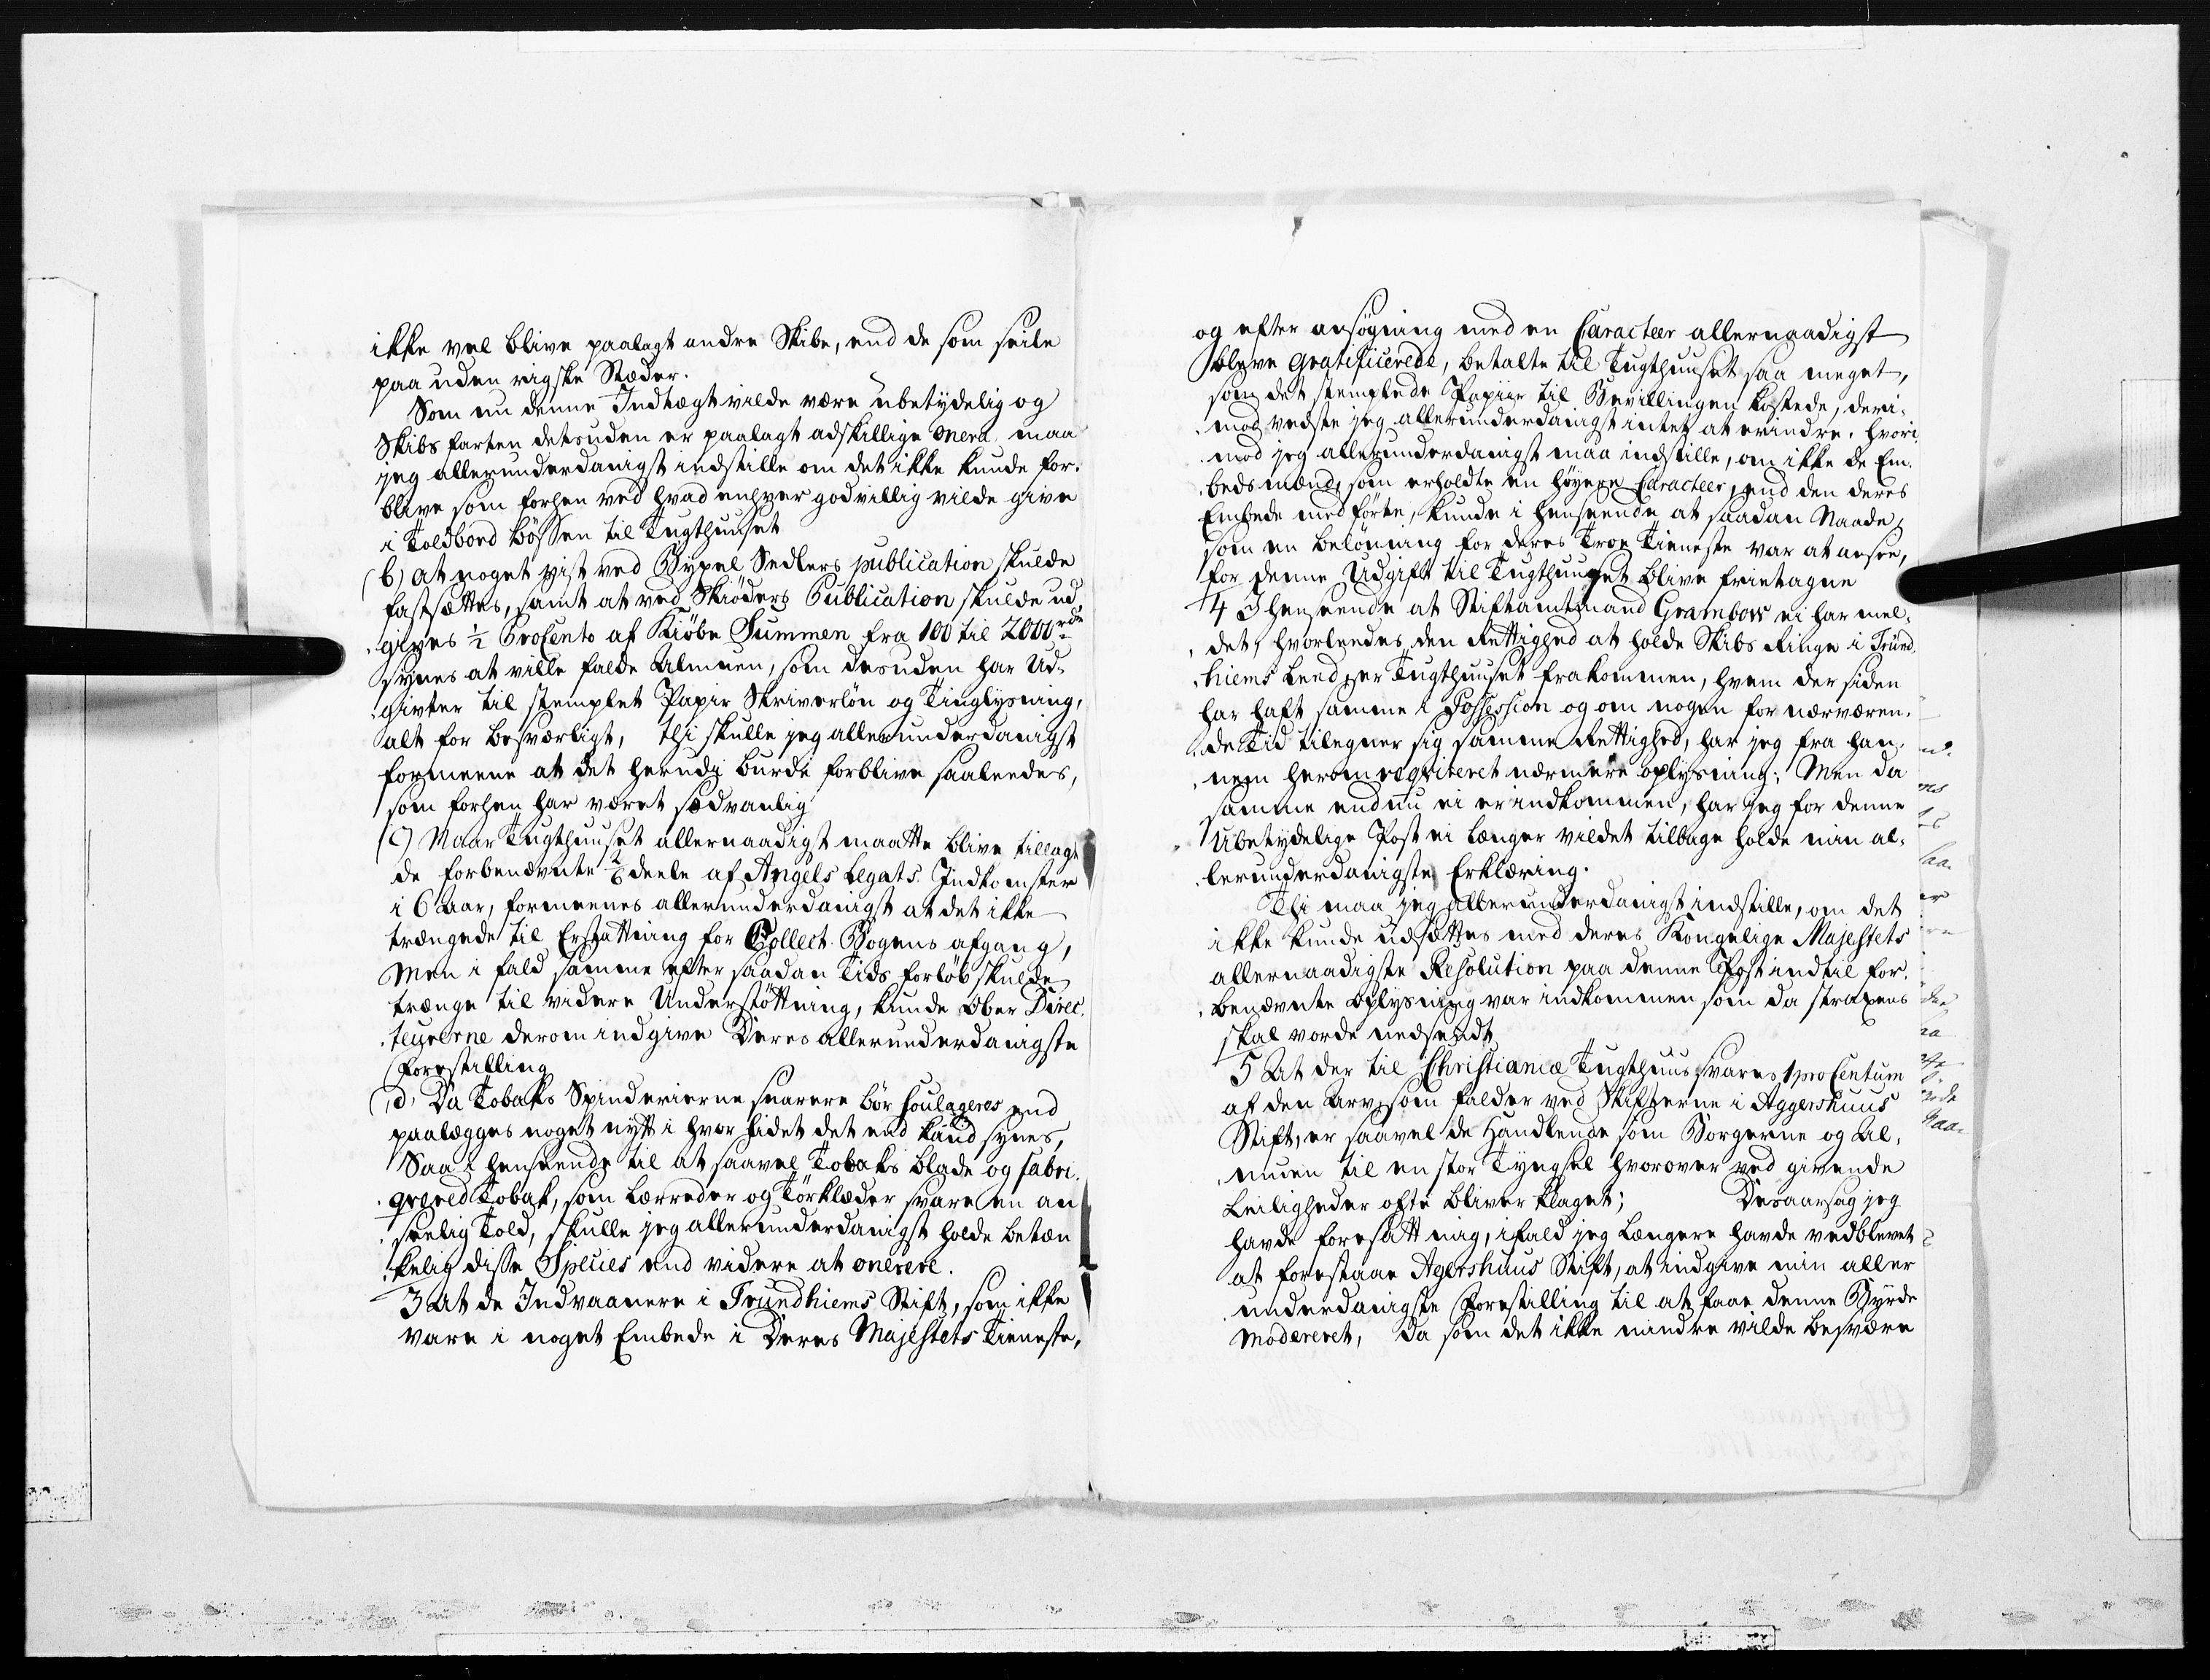 ikke vel blive paalagt andre Skibe, end de som seile
paa uden rigske Stæder.
Som nu denne Indtægt vilde være ubetydelig og
Skibs farten desuden er paalagt adskillige onera, maa
jeg allerunderdanigst indstille om det ikke kunde for¬
blive som forhen ved hvad enhver godvillig vilde give
i Toldbord bössen til Tugthuuset
b) at noget vist ved Bypel Sedlers publication skulde
fastsættes, samt at ved Skiöders Publication skulde ud
gives ½ ProCento af Kiöbe Summen fra 100 til 2000 rdr
synes at ville falde Almuen, som desuden har Ud¬
givter til stemplet Papir Skriverlön og Tinglysning,
alt for besværligt, thi skulle jeg allerunderdanigst
formeene at det herudi burde forblive saaledes,
som forhen har været sædvanlig
c) Naar Tugthuuset allernaadigst maatte blive tillagt
de forbenævnte 2/6 deele af Angels Legats Indkomster
i 6 Aar, formeenes allerunderdanigst at det ikke
trængede til Erstattning for Collect Bogens afgang,
Men i fald samme efter saadan Tids forlöb skulde
trænge til videre Understöttning, kunde Ober Direc¬
teurerne derom indgive Deres allerunderdanigste
Forestilling
d) Da Tobaks Spinderierne snarere bör soulageres end
paalægges noget nytt i hvor lidet det end kand synes,
Saa i henseende til at saavel Tobaks blade og fabri¬
qvered Tobak, som Lærreder og Törklæder svare en an
seelig Told, skulle jeg allerunderdanigst holde betæn
kelig disse Species end videre at onerere.
3 At de Indvaanere i Trundhiems Stift, som ikke
vare i noget Embede i Deres Majestets Tieneste,
og efter ansögning med en Caracteer allernaadigst
bleve gratificerede, betalte til Tugthuuset saa meget,
som det stemplede Papiir til Bevillingen kostede, deri¬
mod vedste jeg allerunderdanigst intet at erindre. hvori
mod jeg allerunderdanigst maa indstille, om ikke de Em¬
bedsmænd, som erholdte en höyere Caracteer, end den deres
Embede medförte, kunde i henseende at saadan Naade,
som en belönning for deres Troe Tieneste var at ansee,
for denne Udgift til Tugthuuset blive frietagne
4 I henseende at Stiftamtmand Grambow ei har mel¬
det, hvorledes den Rettighed at holde Skibs Ringe i Trund
hiems Lend, er Tugthuuset frakommen, hvem der siden
har haft samme i Possession og om nogen for nærværen¬
de Tid tilegner sig samme Rettighed, har jeg fra han¬
nem herom reqviteret nærmere oplysning; Men da
samme endnu ei er indkommen, har jeg for denne
Ubetydelige Post ei længer vildet tilbage holde min al¬
lerunderdanigste Erklæring.
Thi maa jeg allerunderdanigst indstille, om det
ikke kunde udsættes med deres Kongelige Majestets
allernaadigste Resolution paa denne Post indtil for¬
benævnte oplysning var indkommen som da straxens
skal vorde nedsendt
5 At der til Christianiæ Tugthuus svares 1 proCentum
af den Arv, som falder ved Skifterne i Aggershuus
Stift, er saavel de Handlende som Borgerne og Al¬
muen til en stor Tyngsel hvorover ved givende
Leiligheder ofte bliver klaget; Desaarsag jeg
havde foresatt mig, ifald jeg længere havde vedblevet
at forestaae Agershuus Stift, at indgive min aller
underdanigste Forestilling til at faae denne Byrde
Modereret, da som det ikke mindre vilde besvære